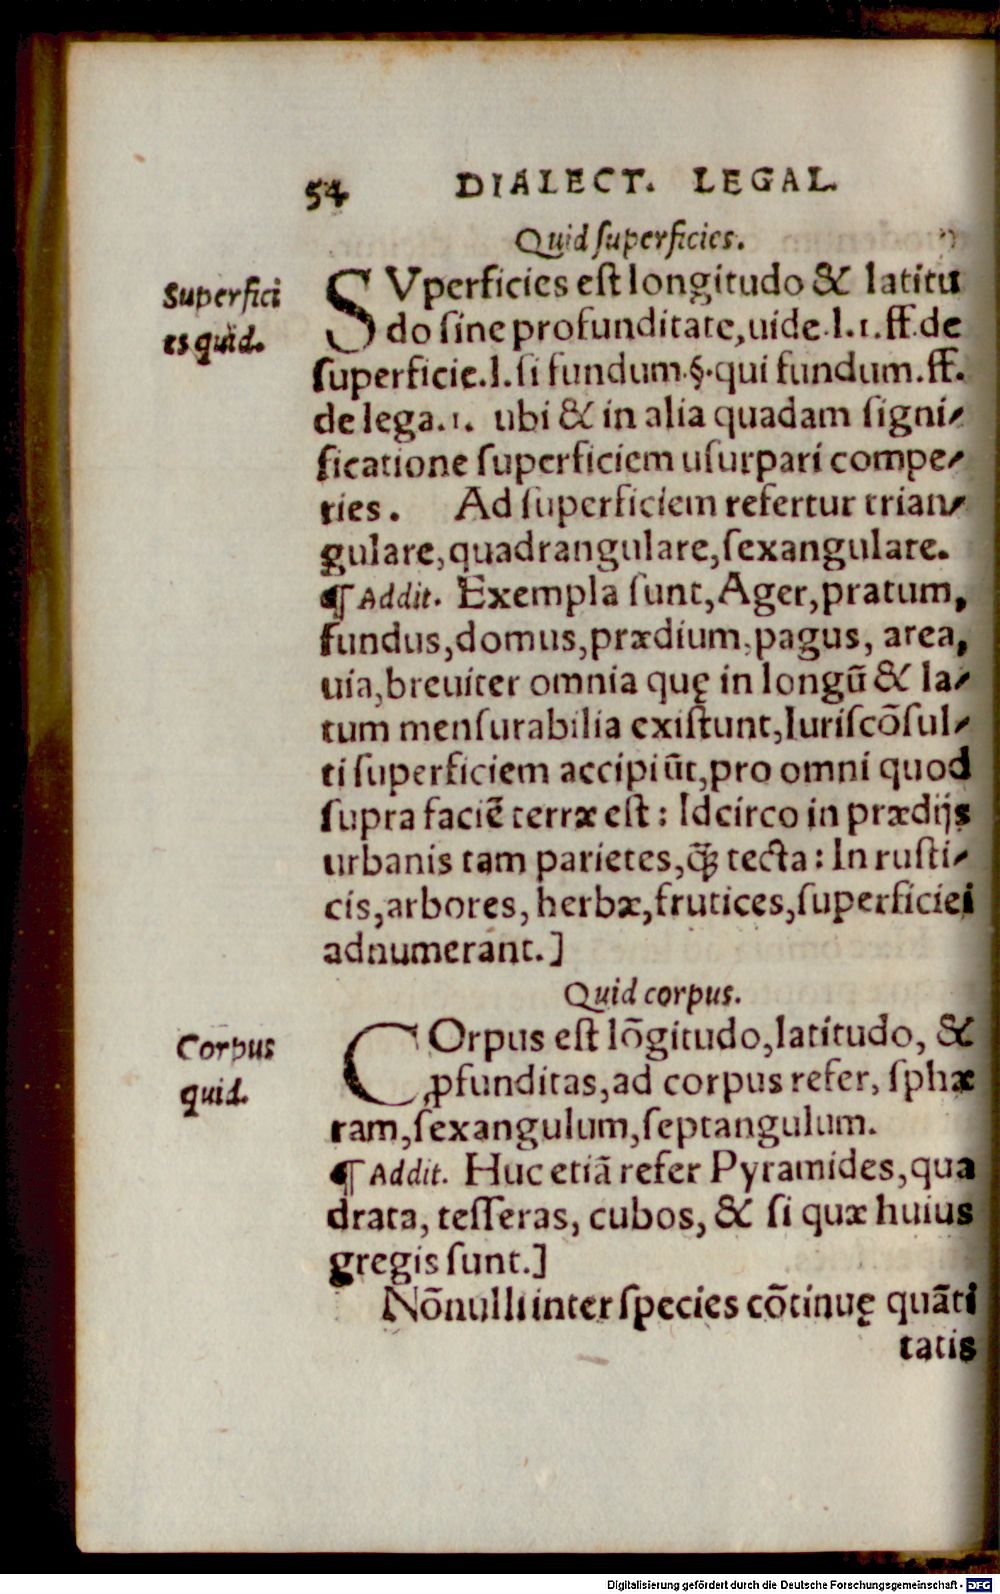 54 DIALECT. LEGAL.
Quid ſuperficies.
Superfici
es quid.
SVperficies eſt longitudo & latitu
do ſine profunditate,uide.l.1.ff.de
ſuperficie.l.ſi fundum.§.qui fundum.ff.
de lega.1. ubi & in alia quadam ſigni-
ficatione ſuperficiem uſurpari compe-
ries. Ad ſuperficiem refertur trian-
gulare,quadrangulare,ſexangulare.
¶ Addit. Exempla ſunt,Ager,pratum,
fundus,domus,prædium,pagus, area,
uia,breuiter omnia quę in longũ & la-
tum menſurabilia exiſtunt,Iuriſcõſul-
ti ſuperficiem accipiũt,pro omni quod
ſupra faciẽ terræ eſt : Idcirco in prædijs
urbanis tam parietes,q̃ꝫ tecta : In ruſti-
cis,arbores, herbæ,frutices,ſuperficiei
adnumerant.]
Quid corpus.
Corpus
quid.
COrpus eſt lõgitudo,latitudo, &
ꝓfunditas,ad corpus refer, ſphæ
ram,ſexangulum,ſeptangulum.
¶ Addit. Huc etiã refer Pyramides,qua
drata, teſſeras, cubos, & ſi quæ huius
gregis ſunt.]
Nõnulli inter ſpecies cõtinuę quãti
tatis
Digitalisierung gefördert durch die Deutsche Forschungsgemeinschaft - DFG